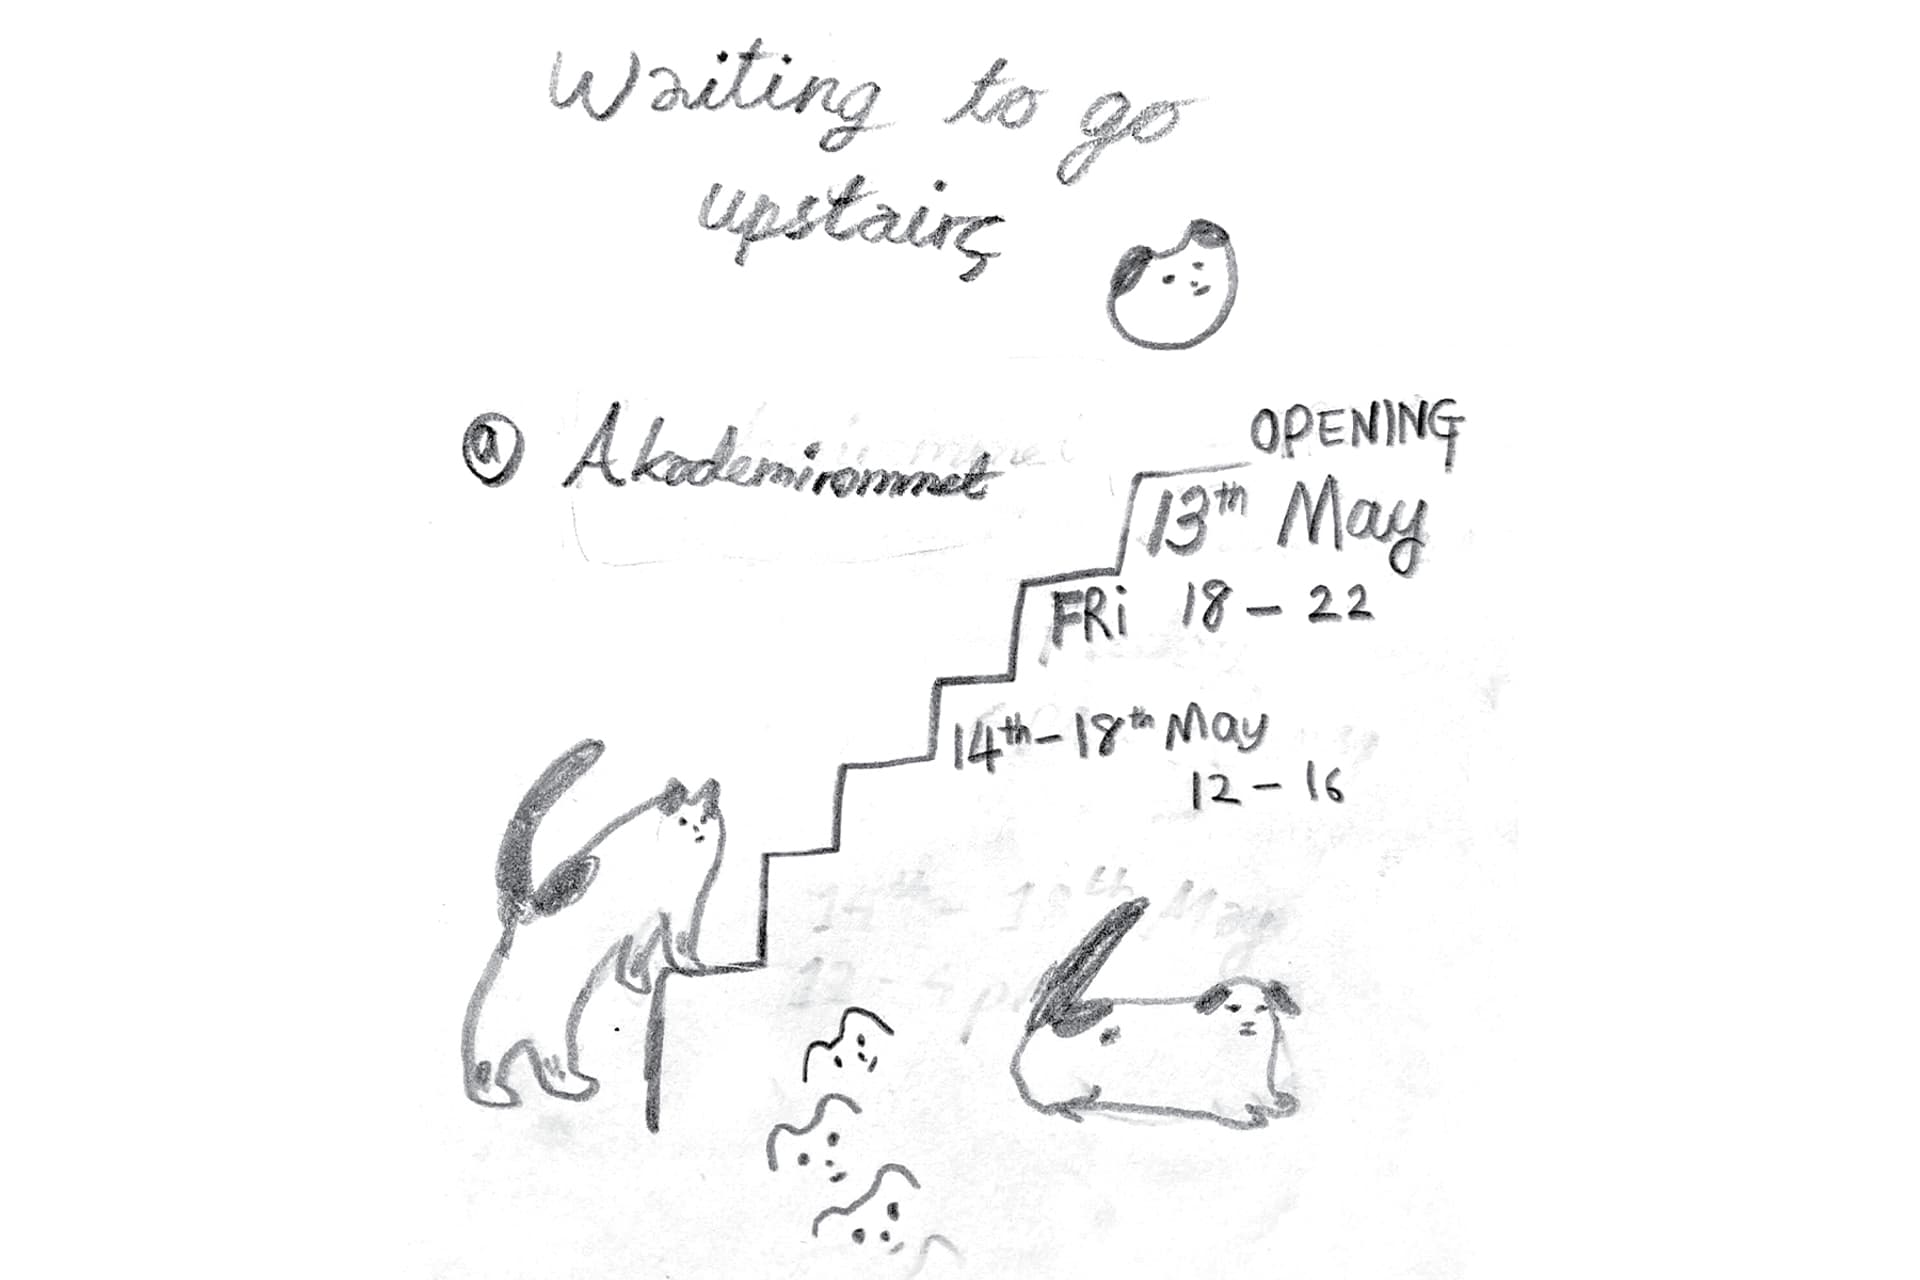 Waiting to go
upstairs
@ Akademirommet
OPENING
13th May
FRi 18 – 22
14th – 18th May
12 – 16
14th – 18th May
12 – 4 pm